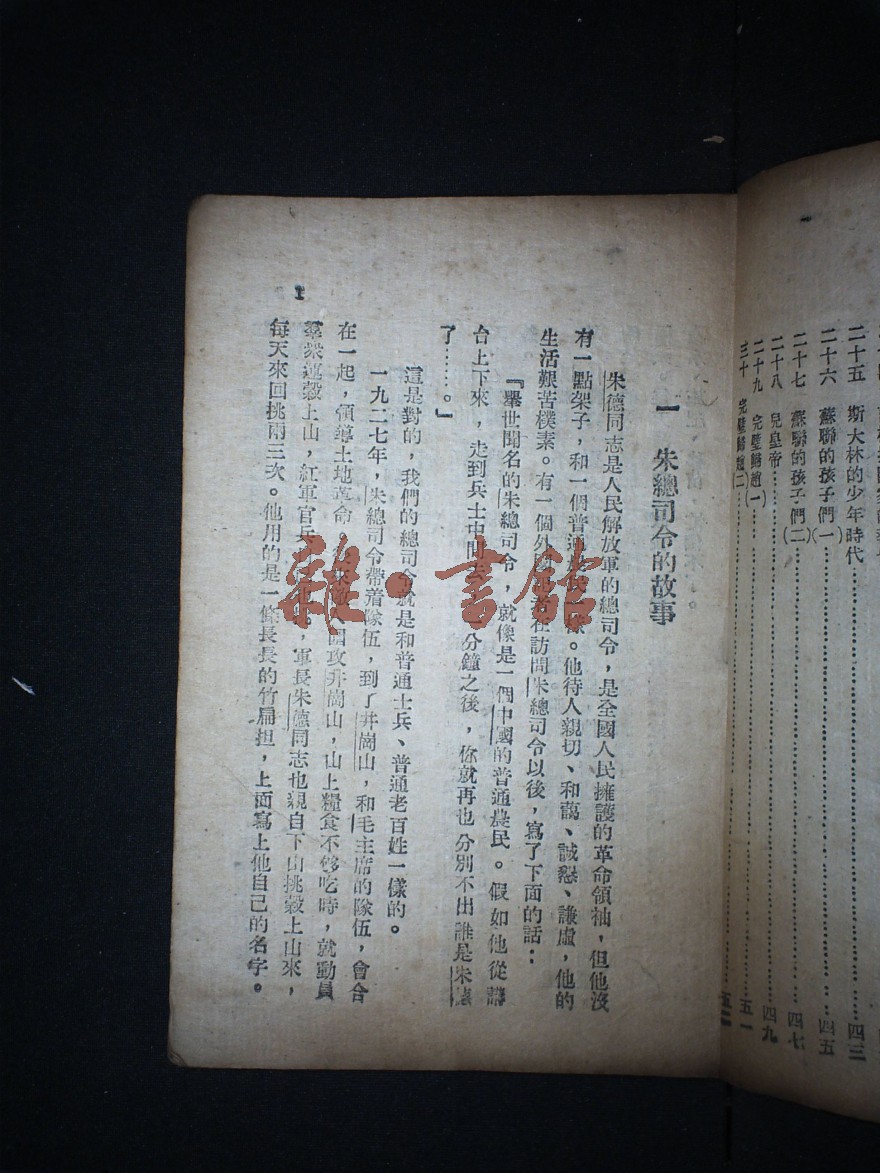 二十五 斯大林的少年時代……四三
二十六 蘇聯的孩子們(一)……四五
二十七 蘇聯的孩子們(二)……四七
二十八 兒皇帝……四九
二十九 完璧歸趙(一)……五一
三十 完璧歸趙(二)……五二
一 朱總司令的故事
朱德同志是人民解放軍的總司令,是全國人民擁護的革命領袖,但他沒
有一點架子,和一個普通農民一樣。他待人親切、和藹、誠懇、謙虛,他的
生活艱苦樸素。有一個外國記者在訪問朱總司令以後,寫了下面的話:
『舉世聞名的朱總司令,就像是一個中國的普通農民。假如他從講
台上下來,走到兵士中間去,分鐘之後,你就再也分別不出誰是朱德
了……。』
這是對的,我們的總司令就是和普通士兵、普通老百姓一樣的。
一九二七年,朱總司令帶着隊伍,到了井崗山,和毛主席的隊伍,會合
在一起,領導土地革命,後來敵人圍攻井崗山,山上糧食不够吃時,就動員
羣衆運穀上山,紅軍官兵,軍長朱德同志也親自下山挑穀上山來,
每天來回挑兩三次。他用的是一條長長的竹扁担,上面寫上他自己的名字。
1
雜·書館